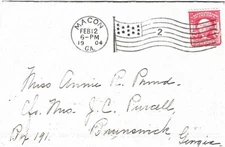 MACON
FEB 12
6-PM
1904
GA.
2
Miss Annie R. Pond
c/o Mrs J. C. Purcell
Box 191.
Brunswick
Georgia